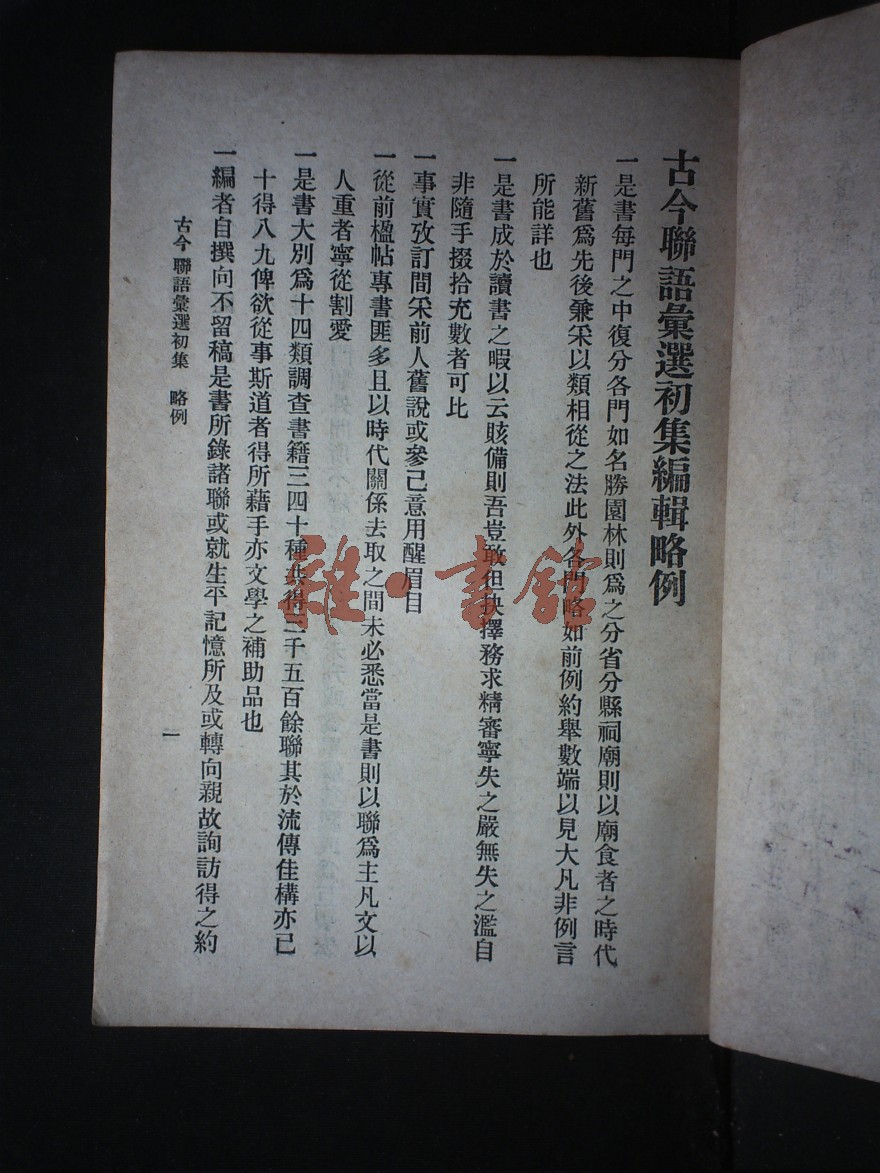 古今聯語彙選初集編輯略例
一是書每門之中復分各門如名勝園林則爲之分省分縣祠廟則以廟食者之時代
新舊爲先後兼采以類相從之法此外各門略如前例約舉數端以見大凡非例言
所能詳也
一是書成於讀書之暇以云賅備則吾豈敢但抉擇務求精審寧失之嚴無失之濫自
非隨手掇拾充數者可比
一事實攷訂間采前人舊說或參己意用醒眉目
一從前楹帖專書匪多且以時代關係去取之間未必悉當是書則以聯爲主凡文以
人重者寧從割愛
一是書大別爲十四類調查書籍三四十種共得三千五百餘聯其於流傳佳構亦已
十得八九俾欲從事斯道者得所藉手亦文學之補助品也
一編者自撰向不留稿是書所錄諸聯或就生平記憶所及或轉向親故詢訪得之約
古今聯語彙選初集 略例
一
雜·書館